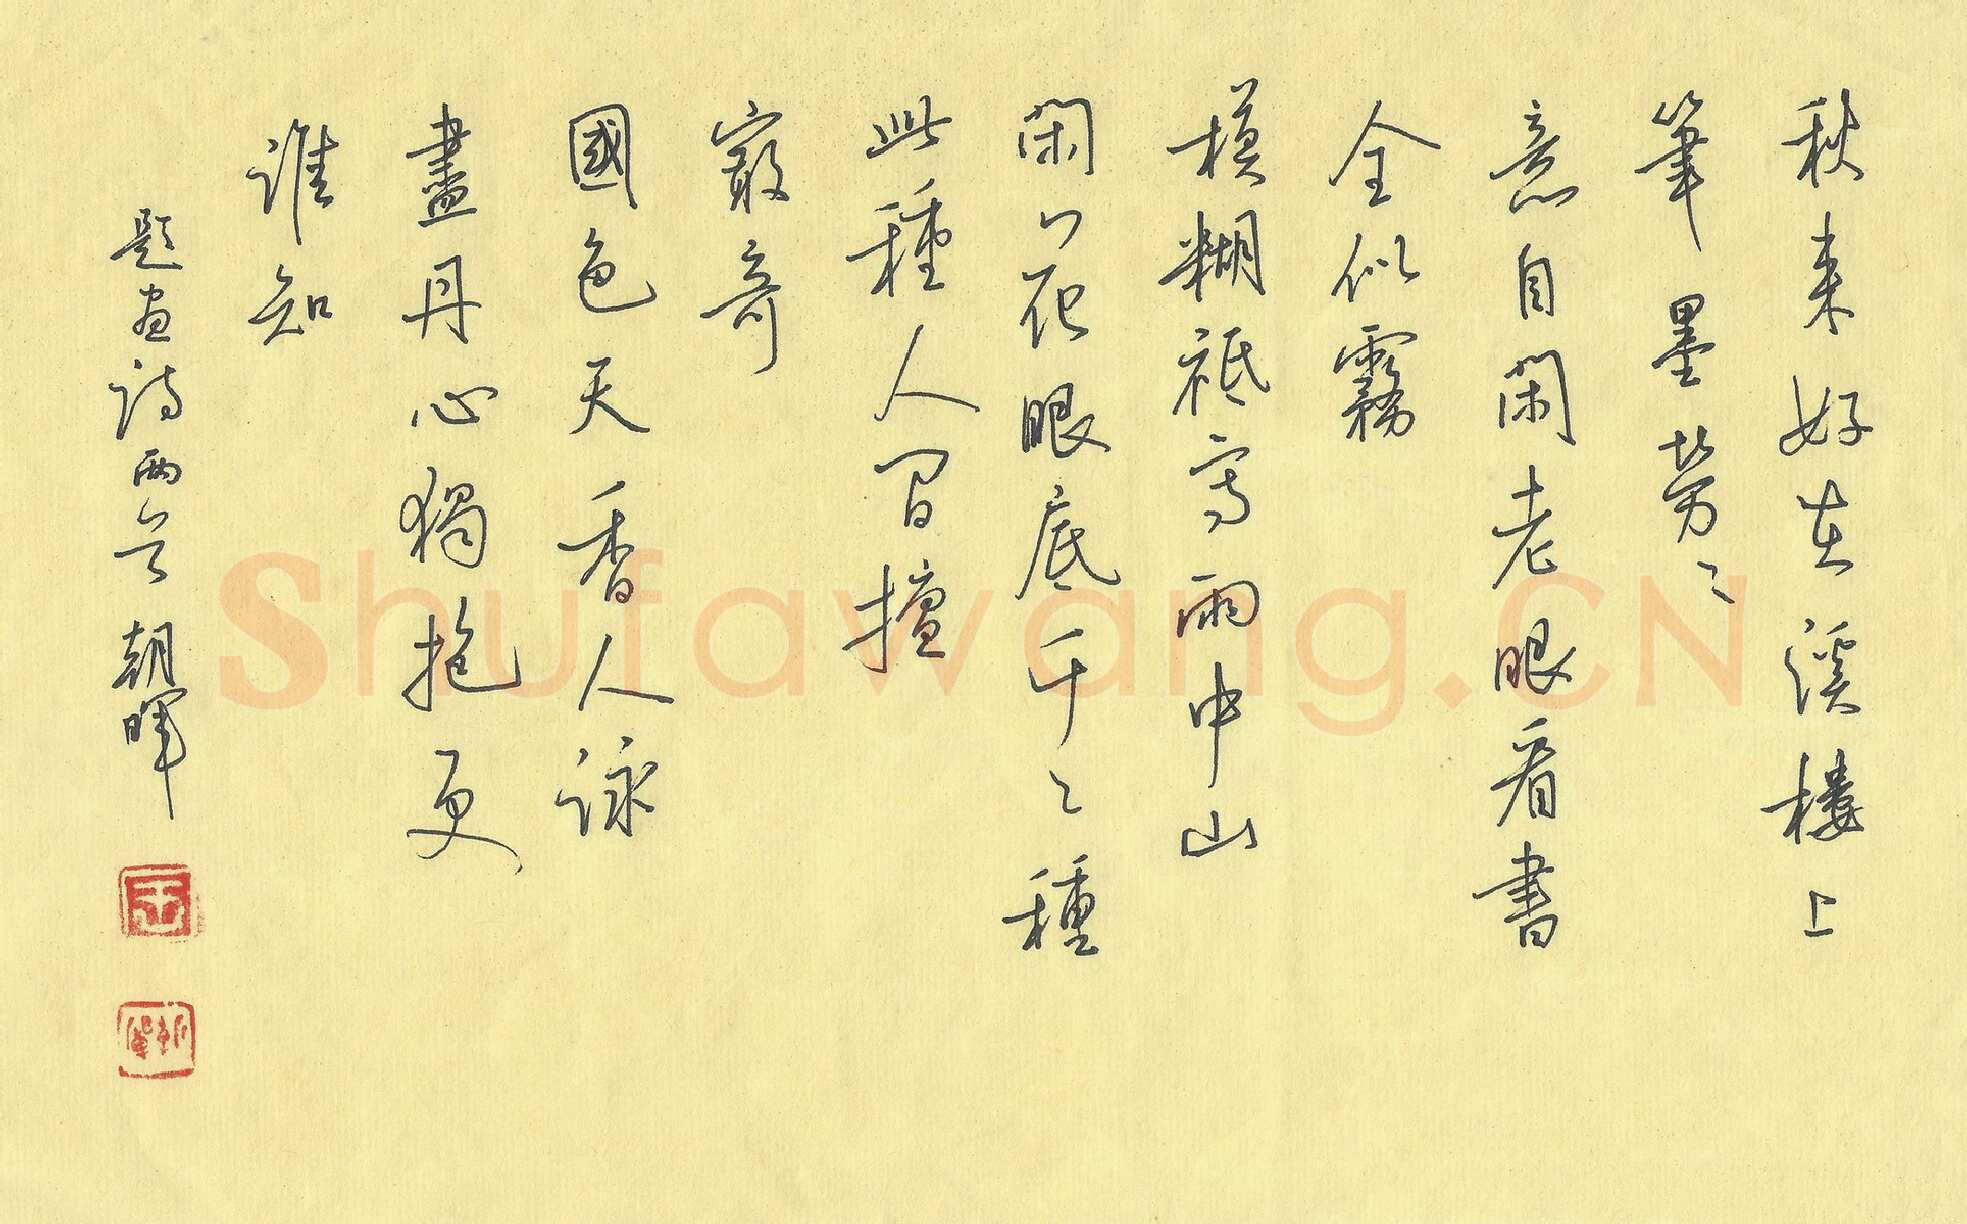 秋来好在溪樓上
筆墨勞〻
意自閑老眼看書
全似霧
模糊祗寫雨中山
閑花眼底千〻種
此種人間擅
最奇
國色天香人詠
盡丹心獨抱更
誰知
題畫詩兩首 朝暉
王
Shufawang.CN